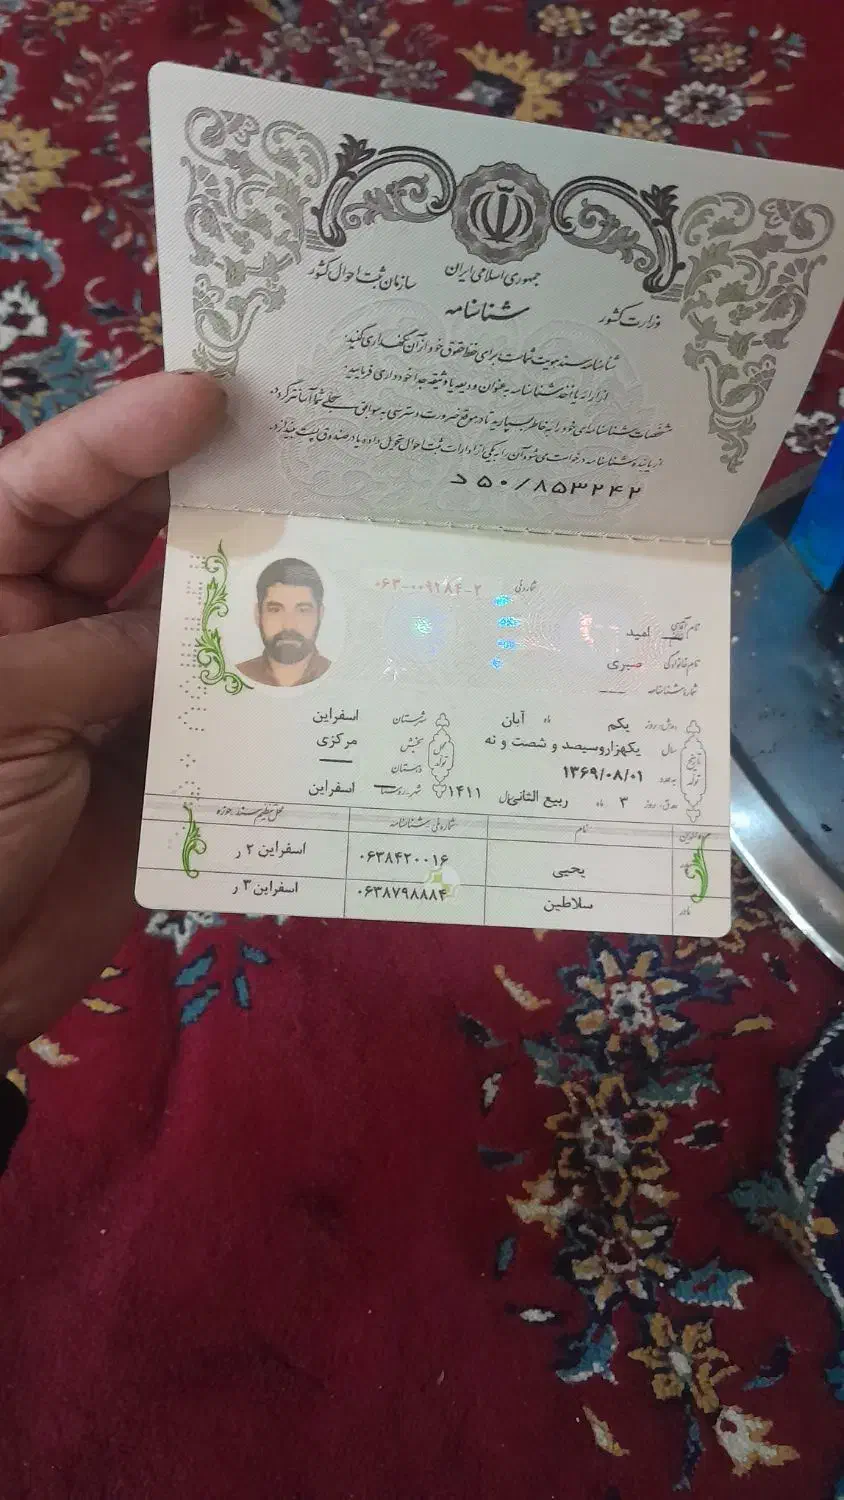 جمهوری اسلامی ایران
وزارت کشور
سازمان ثبت احوال کشور
شناسنامه
شناسنامه سند هویت شماست برای حفظ حقوق خود از آن نگهداری کنید.
از ارائه یا اخذ شناسنامه به عنوان ودیعه یا وثیقه جداً خودداری فرمایید.
مشخصات شناسنامه‌ای خود را به خاطر بسپارید تا در موقع ضرورت دسترسی به سوابق سجلی شما آسانتر گردد.
از یابنده شناسنامه درخواست می شود آن را به یکی از ادارات ثبت احوال تحویل داده یا در صندوق پست بیندازد.
د۵۰/۸۵۳۲۴۲
شماره ملی ۰۶۳-۰۰۹۲۸۴-۲
نام آقای امید
نام خانوادگی صبری
شماره شناسنامه —
تاریخ تولد
شمسی روز یکم ماه آبان
سال یکهزاروسیصد و شصت و نه
به عدد ۱۳۶۹/۰۸/۰۱
قمری روز ۳ ماه ربیع الثانی سال ۱۴۱۱
محل تولد
شهرستان اسفراین
بخش مرکزی
دهستان —
شهر-روستا اسفراین
نام شماره ملی/شناسنامه محل تنظیم سند/حوزه
پدر یحیی ۰۶۳۸۴۲۰۰۱۶ اسفراین ۲ ر
مادر سلاطین ۰۶۳۸۷۹۸۸۸۴ اسفراین ۳ ر